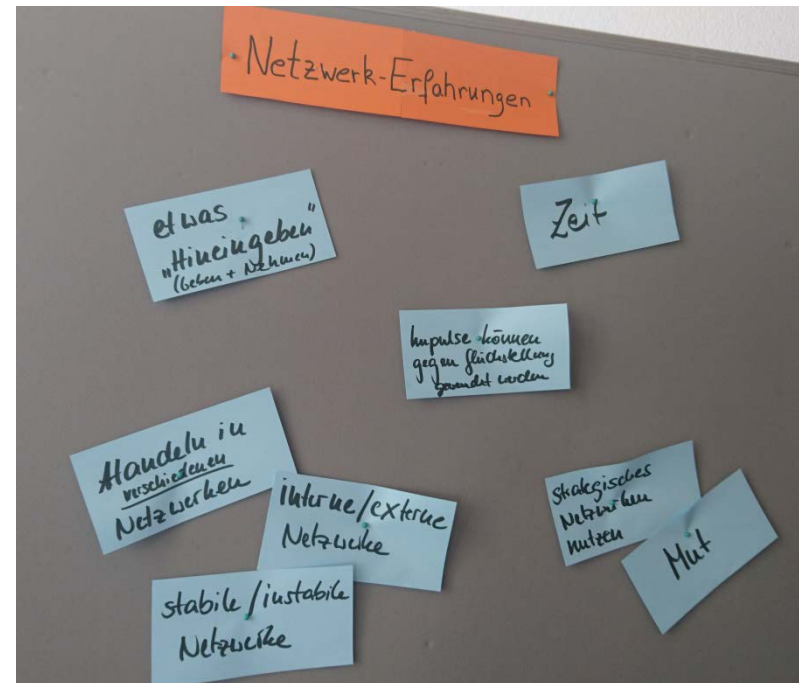 Netzwerk-Erfahrungen
etwas
„Hineingeben“
(Geben + Nehmen)
Zeit
Impulse können
gegen Glichstellung
gewendet werden
Handeln in
verschiedenen
Netzwerken
interne/externe
Netzwerke
stabile/instabile
Netzwerke
strategisches
Netzwerken
nutzen
Mut